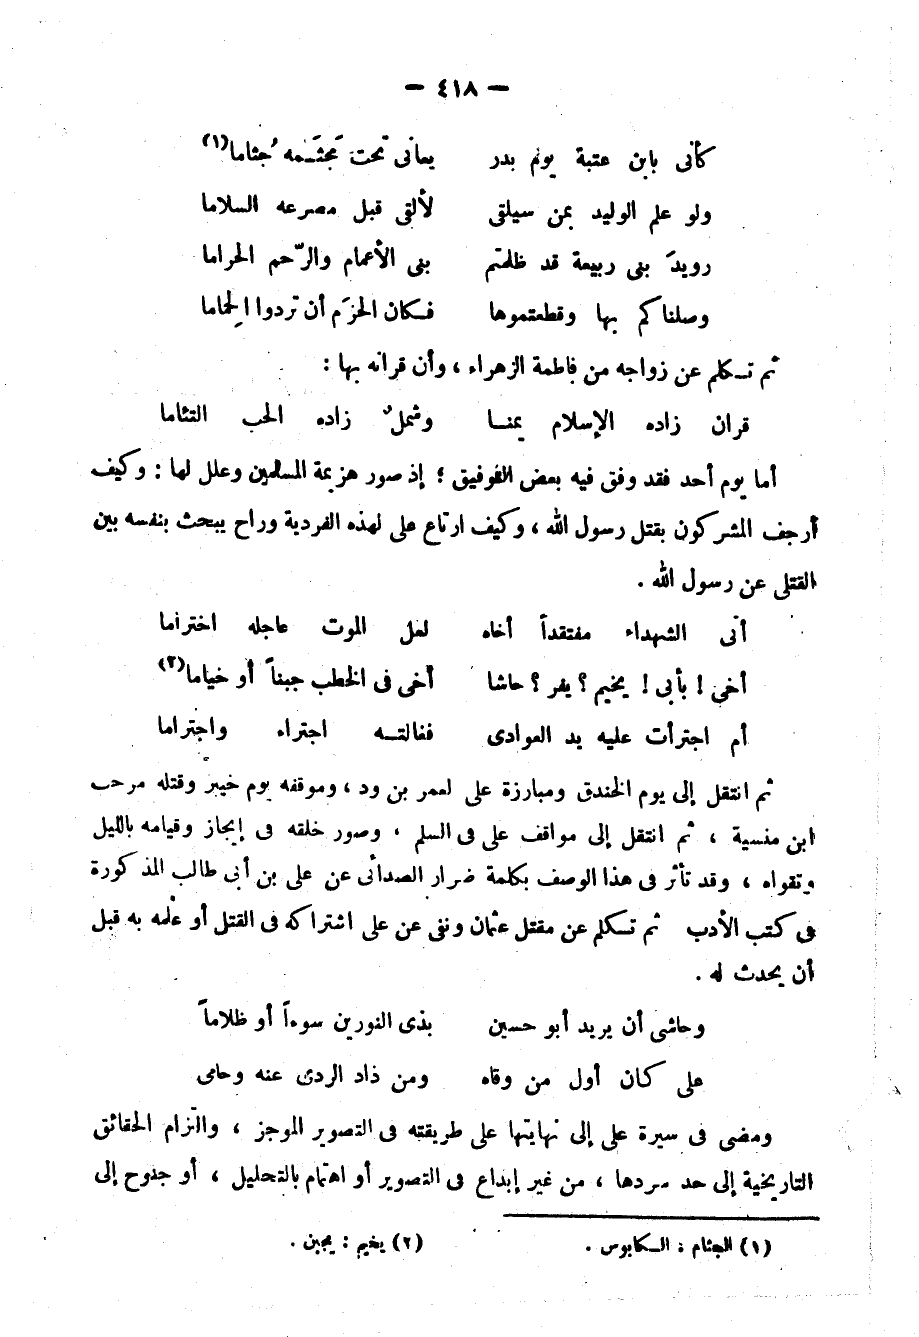 — ٤١٨ —
كأنى بابن عتبة يوم بدر يعانى تحت مَجثَمه جُثاما(١)
ولو علم الوليد بمن سيلقى لألقى قبل مصرعه السلاما
رويدَ بنى ربيعة قد ظلمتم بنى الأعمام والرّحم الحراما
وصلناكم بها وقطعتموها فكان الحزم أن تردوا الحِماما
ثم تكلم عن زواجه من فاطمة الزهراء ، وأن قرانه بها :
قران زاده الإسلام يمنا وشملٌ زاده الحب التئاما
أما يوم أحد فقد وفق فيه بعض التوفيق ؛ إذ صور هزيمة المسلمين وعلل لها : وكيف
أرجف المشركون بقتل رسول الله ، وكيف ارتاع على لهذه الفردية وراح يبحث بنفسه بين
القتلى عن رسول الله .
أتى الشهداء مفتقداً أخاه لعل الموت عاجله اختراما
أخى ! بأبى ! يخيم ؟ يفر ؟ حاشا أخى فى الخطب جبناً أو خياما(٢)
أم اجترأت عليه يد العوادى فنالته اجتراء واجتراما
ثم انتقل إلى يوم الخندق ومبارزة على لعمر بن ود ، وموقفه يوم خيبر وقتله مرحب
ابن منسية ، ثم انتقل إلى مواقف على فى السلم ، وصور خلقه فى إيجاز وقيامه بالليل
وتقواه ، وقد تأثر فى هذا الوصف بكلمة ضرار الصدائى عن على بن أبى طالب المذكورة
فى كتب الأدب ثم تكلم عن مقتل عثمان ونفى عن على اشتراكه فى القتل أو علمه به قبل
أن يحدث له .
وحاشى أن يريد أبو حسين بذى النورين سوءاً أو ظلاماً
على كان أول من وقاه ومن ذاد الردى عنه وحامى
ومضى فى سيرة على إلى نهايتها على طريقته فى التصوير الموجز ، والتزام الحقائق
التاريخية إلى حد سردها ، من غير إبداع فى التصوير أو اهتمام بالتحليل ، أو جنوح إلى
(١) الجثام : الكابوس . (٢) يخيم : يجبن .